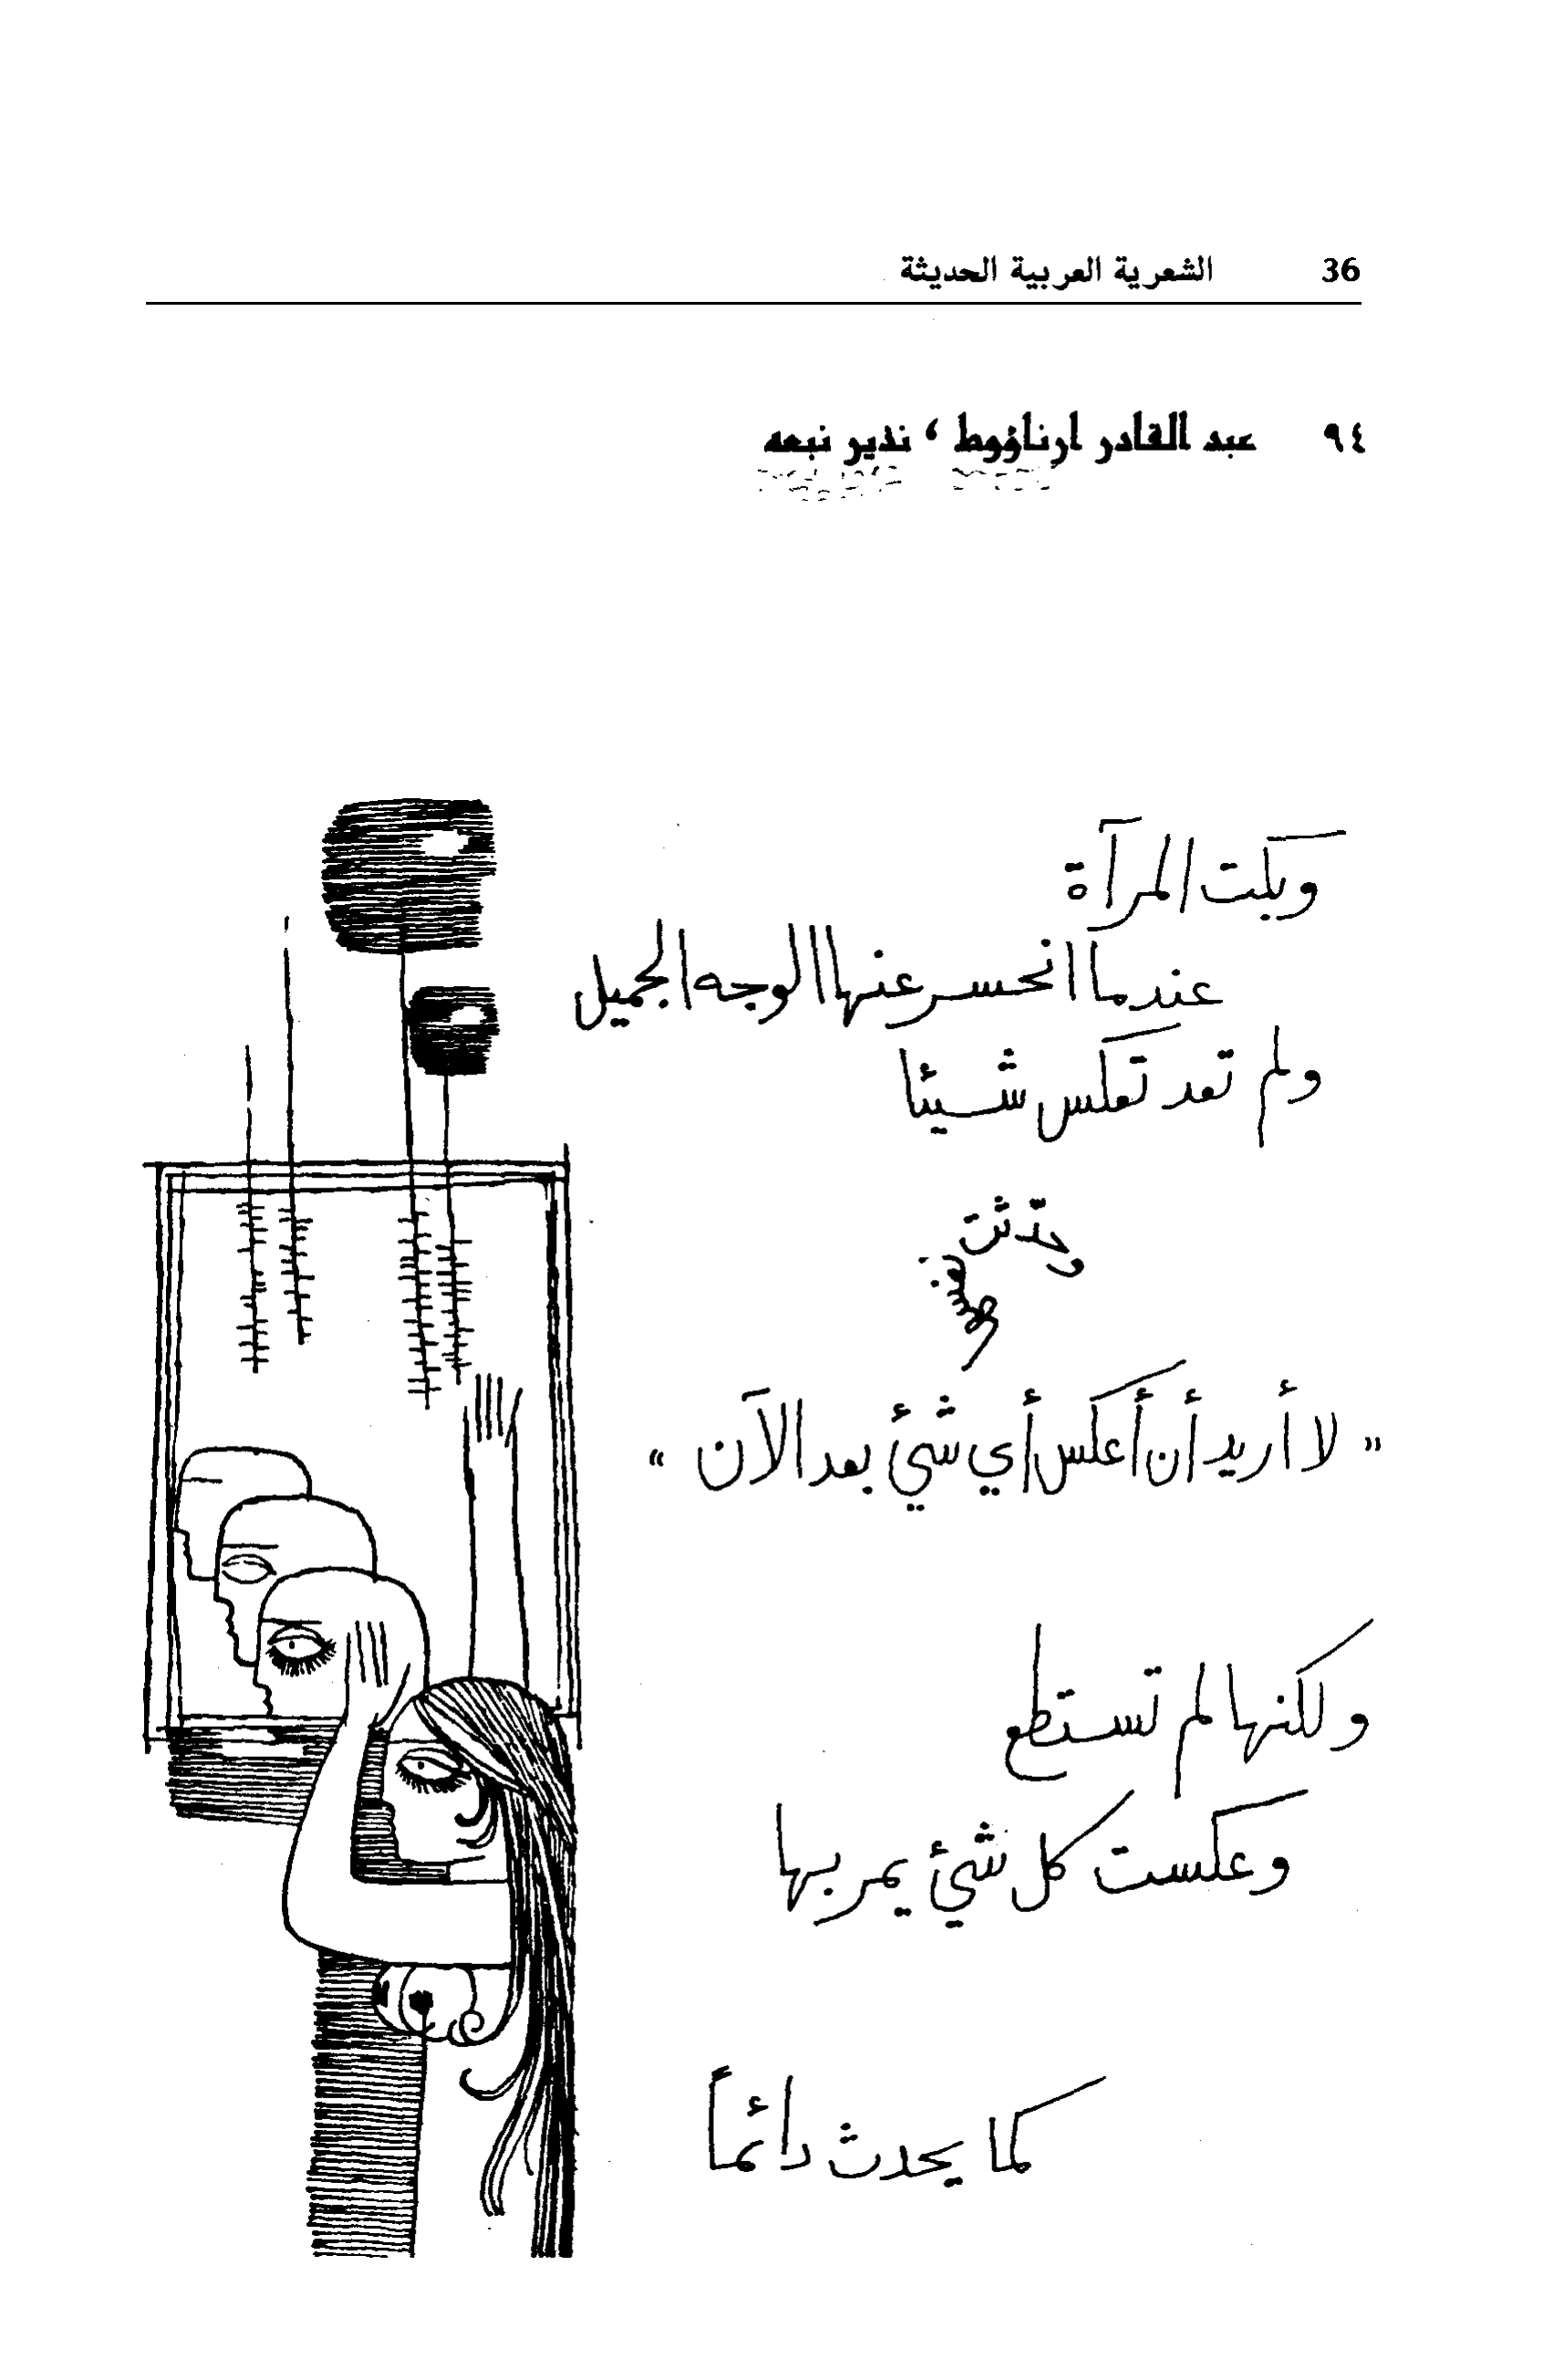 36 الشعرية العربية الحديثة
٩٤ عبد القادر ارناؤوط ، نذير نبعه
وبكت المرآة
عندما انحسر عنها الوجه الجميل
ولم تعد تعكس شيئا
وحدّثت
نفسها
" لا أريد أن أعكس أي شئ بعد الآن "
ولكنها لم تستطع
وعكست كل شئ يمر بها
كما يحدث دائماً